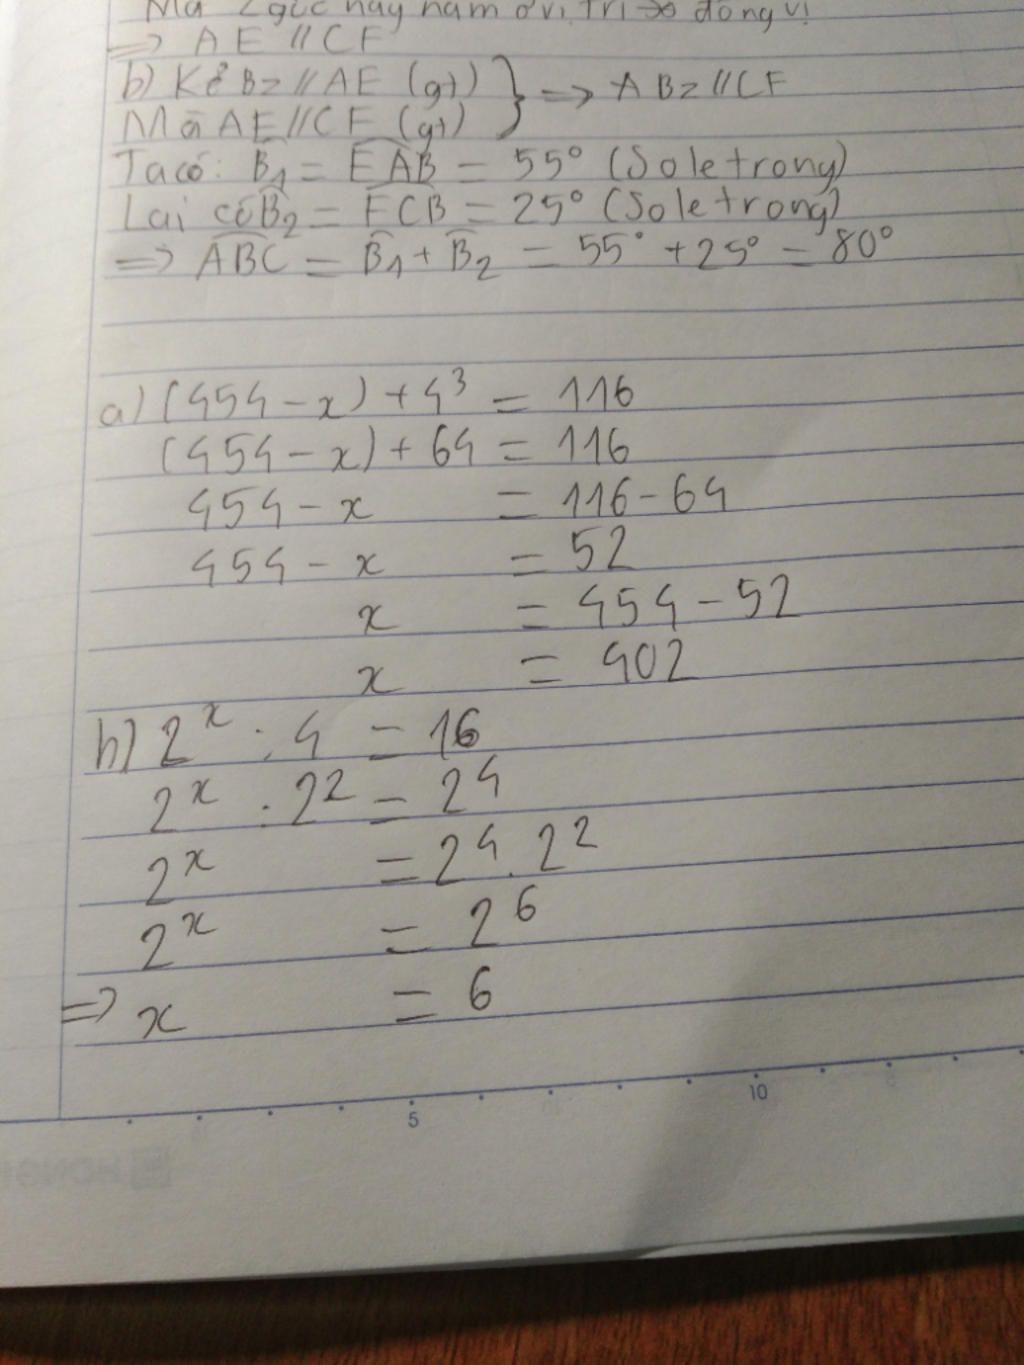 Mà 2 góc này nằm ở vị trí so đồng vị
=> AE // CF
b) Kẻ Bz // AE (gt) } => ABz // CF
Mà AE // CF (gt)
Ta có: B̂1 = EAB = 55° (So le trong)
Lại có B̂2 = FCB = 25° (So le trong)
=> ABC = B̂1 + B̂2 = 55° + 25° = 80°
a) (454 - x) + 4³ = 116
(454 - x) + 64 = 116
454 - x = 116 - 64
454 - x = 52
x = 454 - 52
x = 402
b) 2ˣ : 4 = 16
2ˣ : 2² = 2⁴
2ˣ = 2⁴ . 2²
2ˣ = 2⁶
=> x = 6
5 10